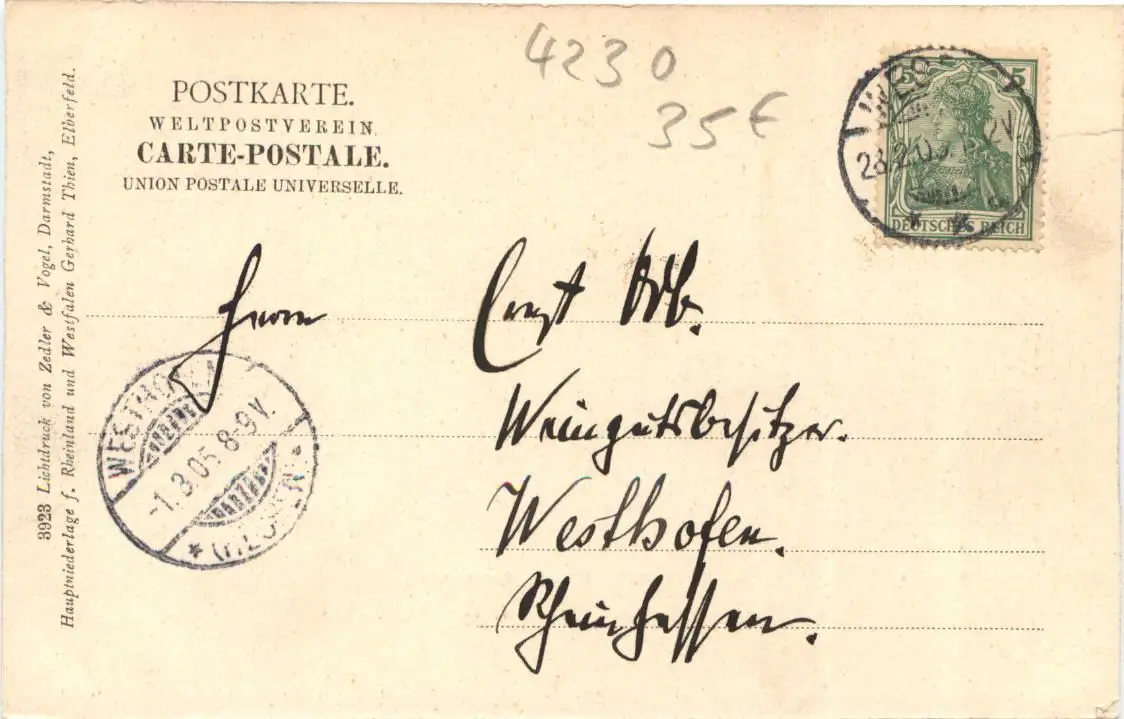 4230
35 €
POSTKARTE.
WELTPOSTVEREIN.
CARTE-POSTALE.
UNION POSTALE UNIVERSELLE.
5 5
DEUTSCHES REICH
Herrn
Ernst
Weingutsbesitzer.
Westhofen.
Rheinhessen.
-1.3.05.8-9V.
3923 Lichtdruck von Zedler & Vogel, Darmstadt,
Hauptniederlage f. Rheinland und Westfalen Gerhard Thien, Elberfeld.